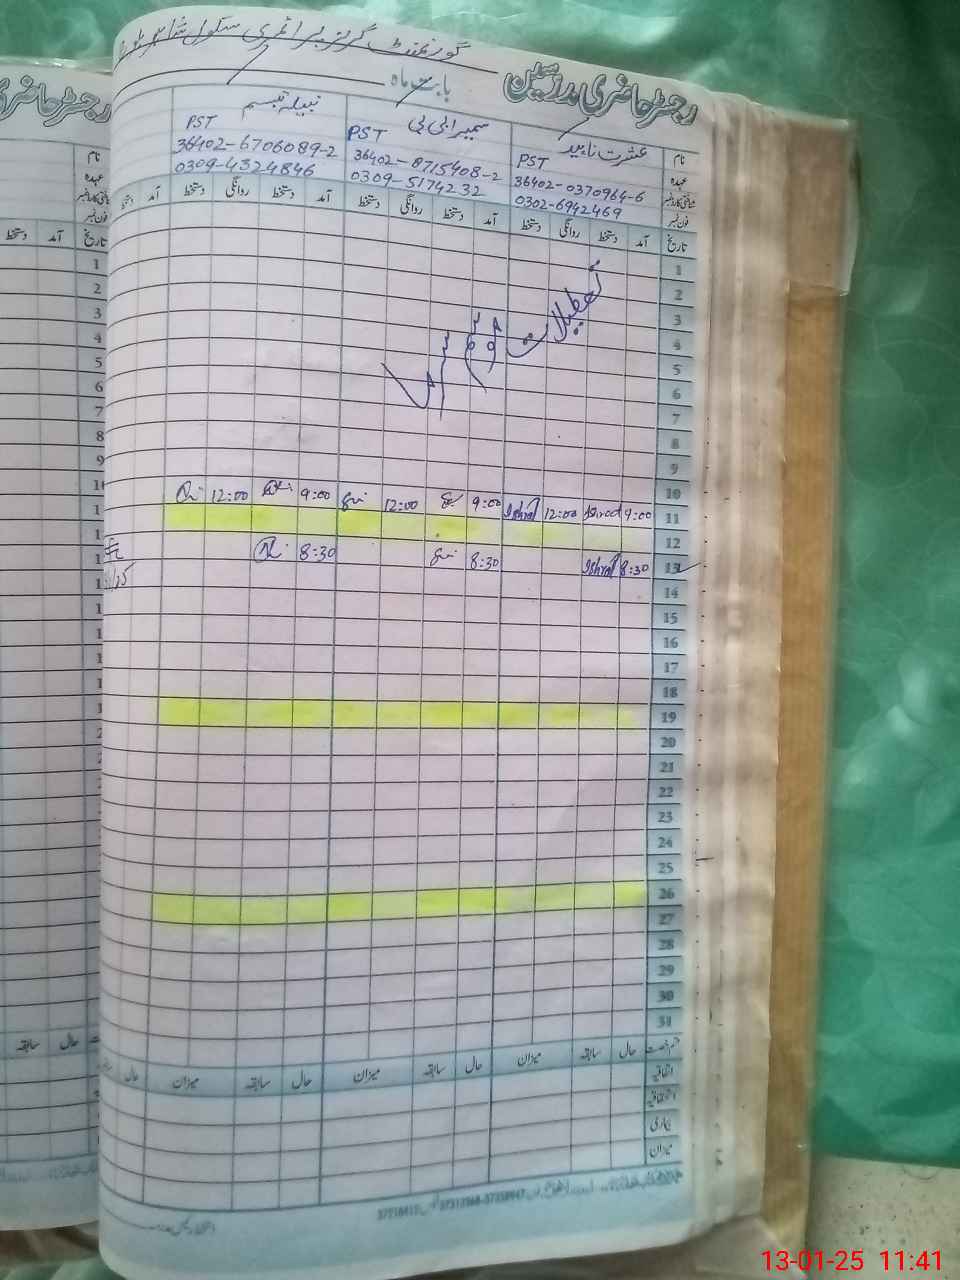 گورنمنٹ گرلز پرائمری سکول
رجسٹر حاضری مدرسین
بابت ماہ
نام
عشرت ناہید
سمیرا بی بی
نبیلہ تبسم
عہدہ
PST
PST
PST
شناختی کارڈ نمبر
36402-0370964-6
36402-8715408-2
36402-6706089-2
فون نمبر
0302-6942469
0309-5174232
0309-4324846
تاریخ آمد دستخط روانگی دستخط آمد دستخط روانگی دستخط آمد دستخط روانگی دستخط آمد
1
2
3
4
5
6
7
8
9
10
تعطیلات موسم سرما
11 9:00 Ishrat 12:00 Ishrat 9:00 12:00 9:00 12:00
12
13 8:30 Ishrat 8:30 8:30
14
15
16
17
18
19
20
21
22
23
24
25
26
27
28
29
30
31
حال سابقہ میزان حال سابقہ میزان حال سابقہ میزان حال
اتفاقیہ
استحقاقیہ
بیماری
میزان
تاریخ آمد دستخط
حال سابقہ
13-01-25 11:41